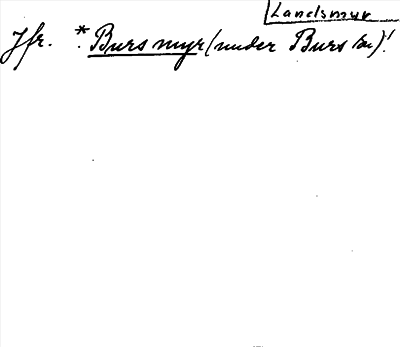 Landsmyr
Jfr. *Burs myr (under Burs sn)!